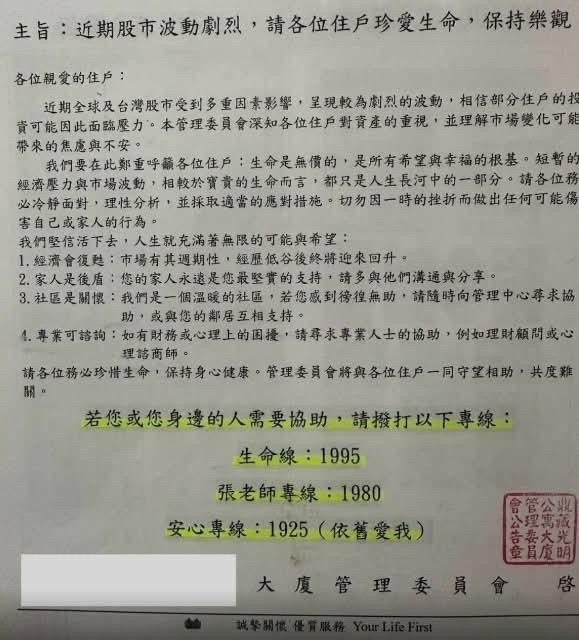 主旨：近期股市波動劇烈，請各位住戶珍愛生命，保持樂觀
各位親愛的住戶：
近期全球及台灣股市受到多重因素影響，呈現較為劇烈的波動，相信部分住戶的投
資可能因此面臨壓力。本管理委員會深知各位住戶對資產的重視，並理解市場變化可能
帶來的焦慮與不安。
我們要在此鄭重呼籲各位住戶：生命是無價的，是所有希望與幸福的根基。短暫的
經濟壓力與市場波動，相較於寶貴的生命而言，都只是人生長河中的一部分。請各位務
必冷靜面對，理性分析，並採取適當的應對措施。切勿因一時的挫折而做出任何可能傷
害自己或家人的行為。
我們堅信活下去，人生就充滿著無限的可能與希望：
1.經濟會復甦：市場有其週期性，經歷低谷後終將迎來回升。
2.家人是後盾：您的家人永遠是您最堅實的支持，請多與他們溝通與分享。
3.社區是關懷：我們是一個溫暖的社區，若您感到徬徨無助，請隨時向管理中心尋求協
助，或與您的鄰居互相支持。
4.專業可諮詢：如有財務或心理上的困擾，請尋求專業人士的協助，例如理財顧問或心
理諮商師。
請各位務必珍惜生命，保持身心健康。管理委員會將與各位住戶一同守望相助，共度難
關。
若您或您身邊的人需要協助，請撥打以下專線：
生命線：1995
張老師專線：1980
安心專線：1925（依舊愛我）
鼎藏光明
公寓大廈
管理委員
會公告章
大廈管理委員會 啓
誠摯關懷 優質服務 Your Life First